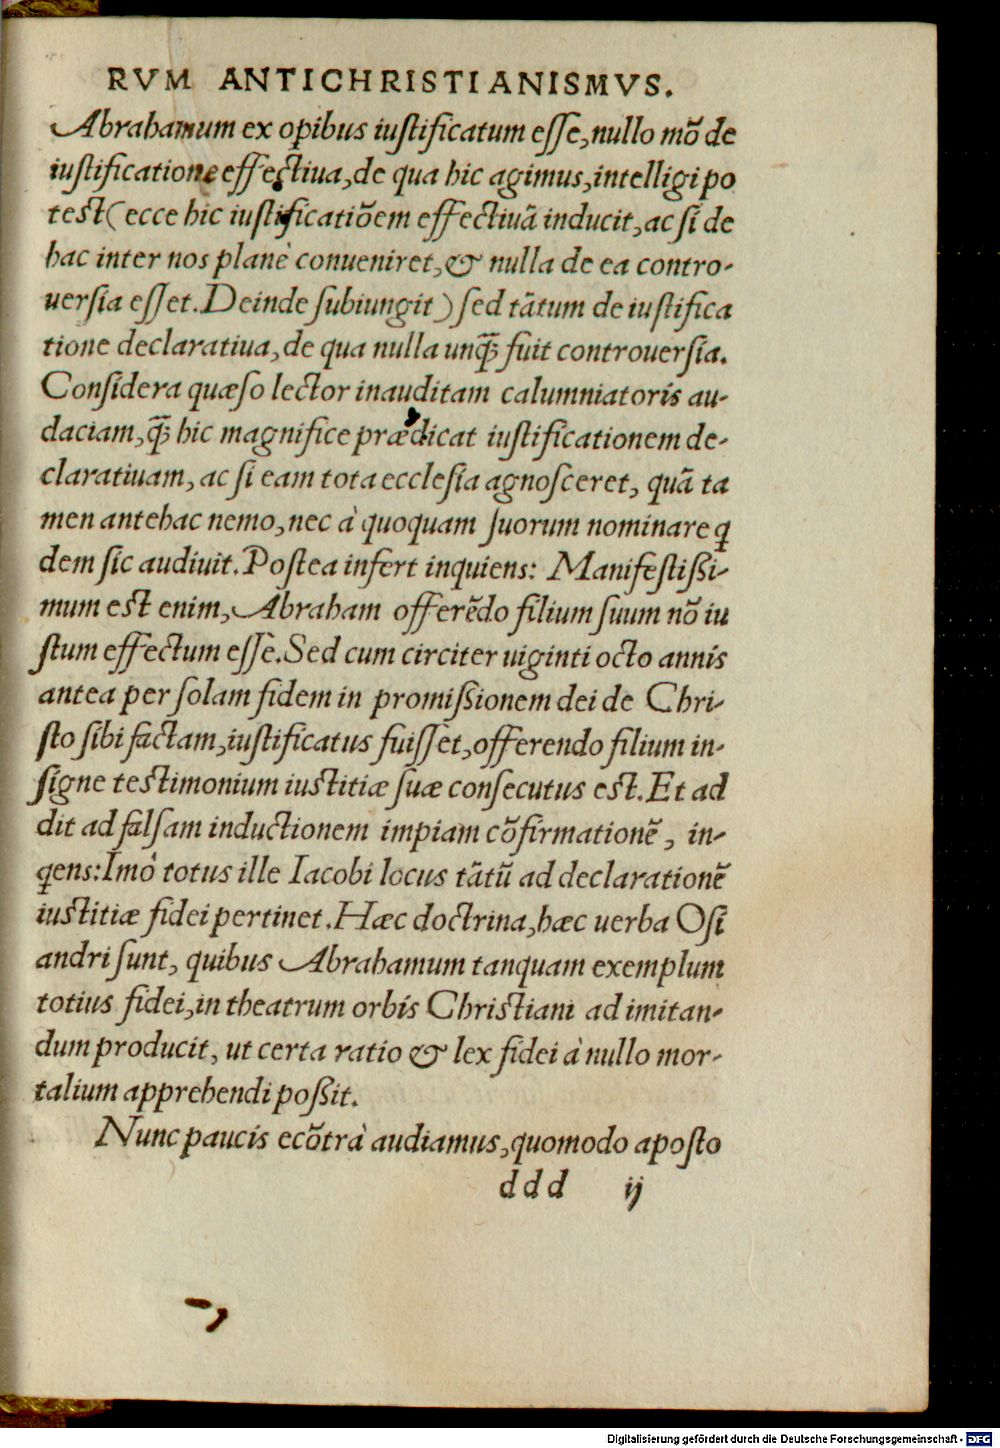 RVM ANTICHRISTIANISMVS.
Abrahamum ex opibus iuſtificatum eſſe, nullo mõ de
iuſtificatione effectiua, de qua hic agimus, intelligi po
test (ecce hic iuſtificatiõem effectiuã inducit, ac ſi de
hac inter nos planè conueniret, & nulla de ea contro-
uerſia eſſet. Deinde ſubiungit) ſed tãtum de iuſtifica
tione declaratiua, de qua nulla unq̃ fuit controuerſia.
Conſidera quæſo lector inauditam calumniatoris au-
daciam, q̃ hic magnifice prædicat iuſtificationem de-
claratiuam, ac ſi eam tota eccleſia agnoſceret, quã ta
men antehac nemo, nec à quoquam ſuorum nominare q
dem ſic audiuit. Postea infert inquiens: Manifeſtißi-
mum est enim, Abraham offerẽdo filium ſuum nõ iu
ſtum effectum eſſe. Sed cum circiter uiginti octo annis
antea per ſolam fidem in promißionem dei de Chri-
ſto ſibi factam, iuſtificatus fuiſſet, offerendo filium in-
ſigne testimonium iustitiæ ſuæ conſecutus est. Et ad
dit ad falſam inductionem impiam cõfirmationẽ, in-
qens: Imò totus ille Iacobi locus tãtũ ad declarationẽ
iustitiæ fidei pertinet. Hæc doctrina, hæc uerba Oſi
andri ſunt, quibus Abrahamum tanquam exemplum
totius fidei, in theatrum orbis Christiani ad imitan-
dum producit, ut certa ratio & lex fidei à nullo mor-
talium apprehendi poßit.
Nunc paucis ecõtrà audiamus, quomodo apoſto
ddd ij
Digitalisierung gefördert durch die Deutsche Forschungsgemeinschaft - DFG